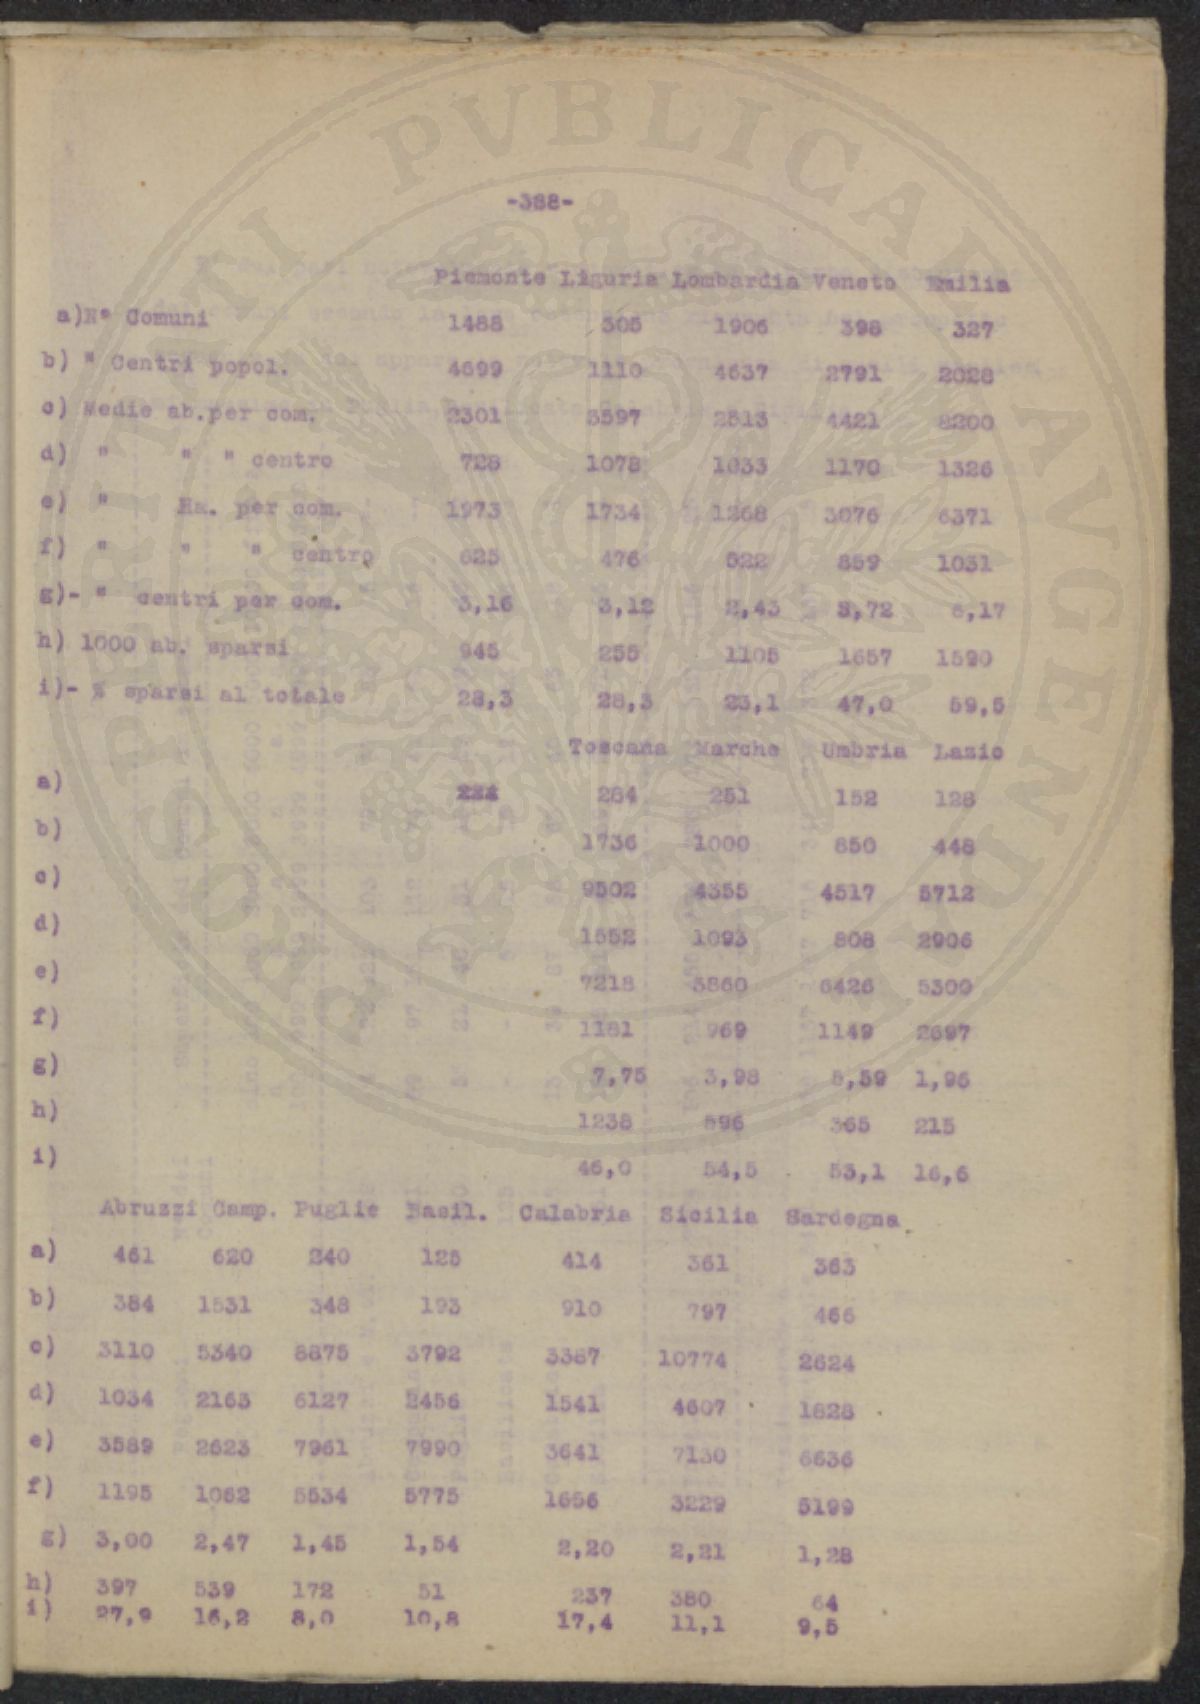 SPERITI PVBLICAE AVGENDAE PROSPERITATI
-388-
Piemonte Liguria Lombardia Veneto Emilia
a)N° Comuni 1488 305 1906 398 327
b) " Centri popol. 4699 1110 4637 2791 2028
c) Medie ab.per com. 2301 3597 2513 4421 8200
d) " " " centro 728 1078 1033 1170 1326
e) " Ha. per com. 1973 1734 1268 3076 6371
f) " " " centro 625 476 522 859 1031
g)- " centri per com. 3,16 3,12 2,43 3,72 6,17
h) 1000 ab. sparsi 945 255 1105 1657 1590
i)- % sparsi al totale 28,3 28,3 23,1 47,0 59,5
Toscana Marche Umbria Lazio
a) 284 251 152 128
b) 1736 1000 850 448
c) 9502 4355 4517 5712
d) 1552 1093 808 2906
e) 7218 3860 6426 5300
f) 1181 969 1149 2697
g) 7,75 3,98 5,59 1,96
h) 1238 596 365 215
i) 46,0 54,5 53,1 16,6
Abruzzi Camp. Puglie Basil. Calabria Sicilia Sardegna
a) 461 620 240 125 414 361 363
b) 384 1531 348 193 910 797 466
c) 3110 5340 8875 3792 3387 10774 2624
d) 1034 2163 6127 2456 1541 4607 1828
e) 3589 2623 7961 7990 3641 7130 6636
f) 1195 1062 5534 5775 1656 3229 5199
g) 3,00 2,47 1,45 1,54 2,20 2,21 1,28
h) 397 539 172 51 237 380 64
i) 27,9 16,2 8,0 10,8 17,4 11,1 9,5